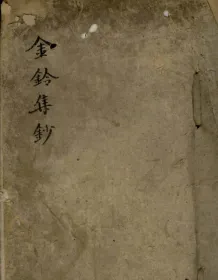 金鈴集鈔